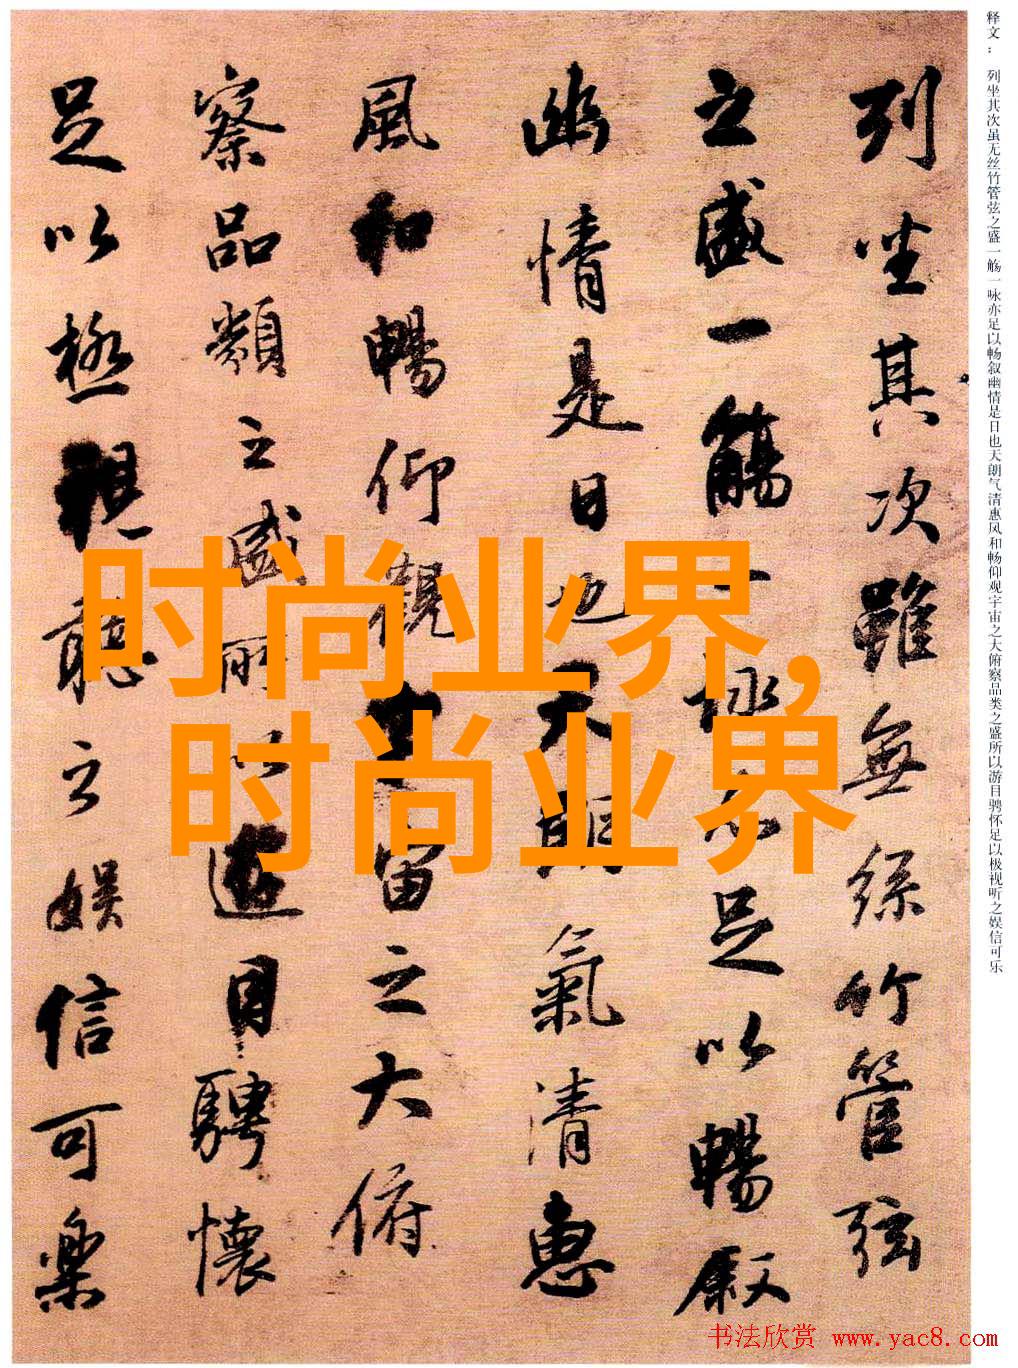 释文： 列坐其次虽无丝竹管弦之盛一觞一咏亦足以畅叙幽情是日也天朗气清惠风和畅仰观宇宙之大俯察品类之盛所以游目骋怀足以极视听之娱信可乐
列坐其次雖無絲竹管弦
之盛一觴一詠亦足以暢叙
幽情是日也天朗氣清惠
風和暢仰觀宇宙之大俯
察品類之盛所以遊目騁懷
足以極視聽之娛信可樂
时尚业界,
时尚业界
书法欣赏 www.yac8.com